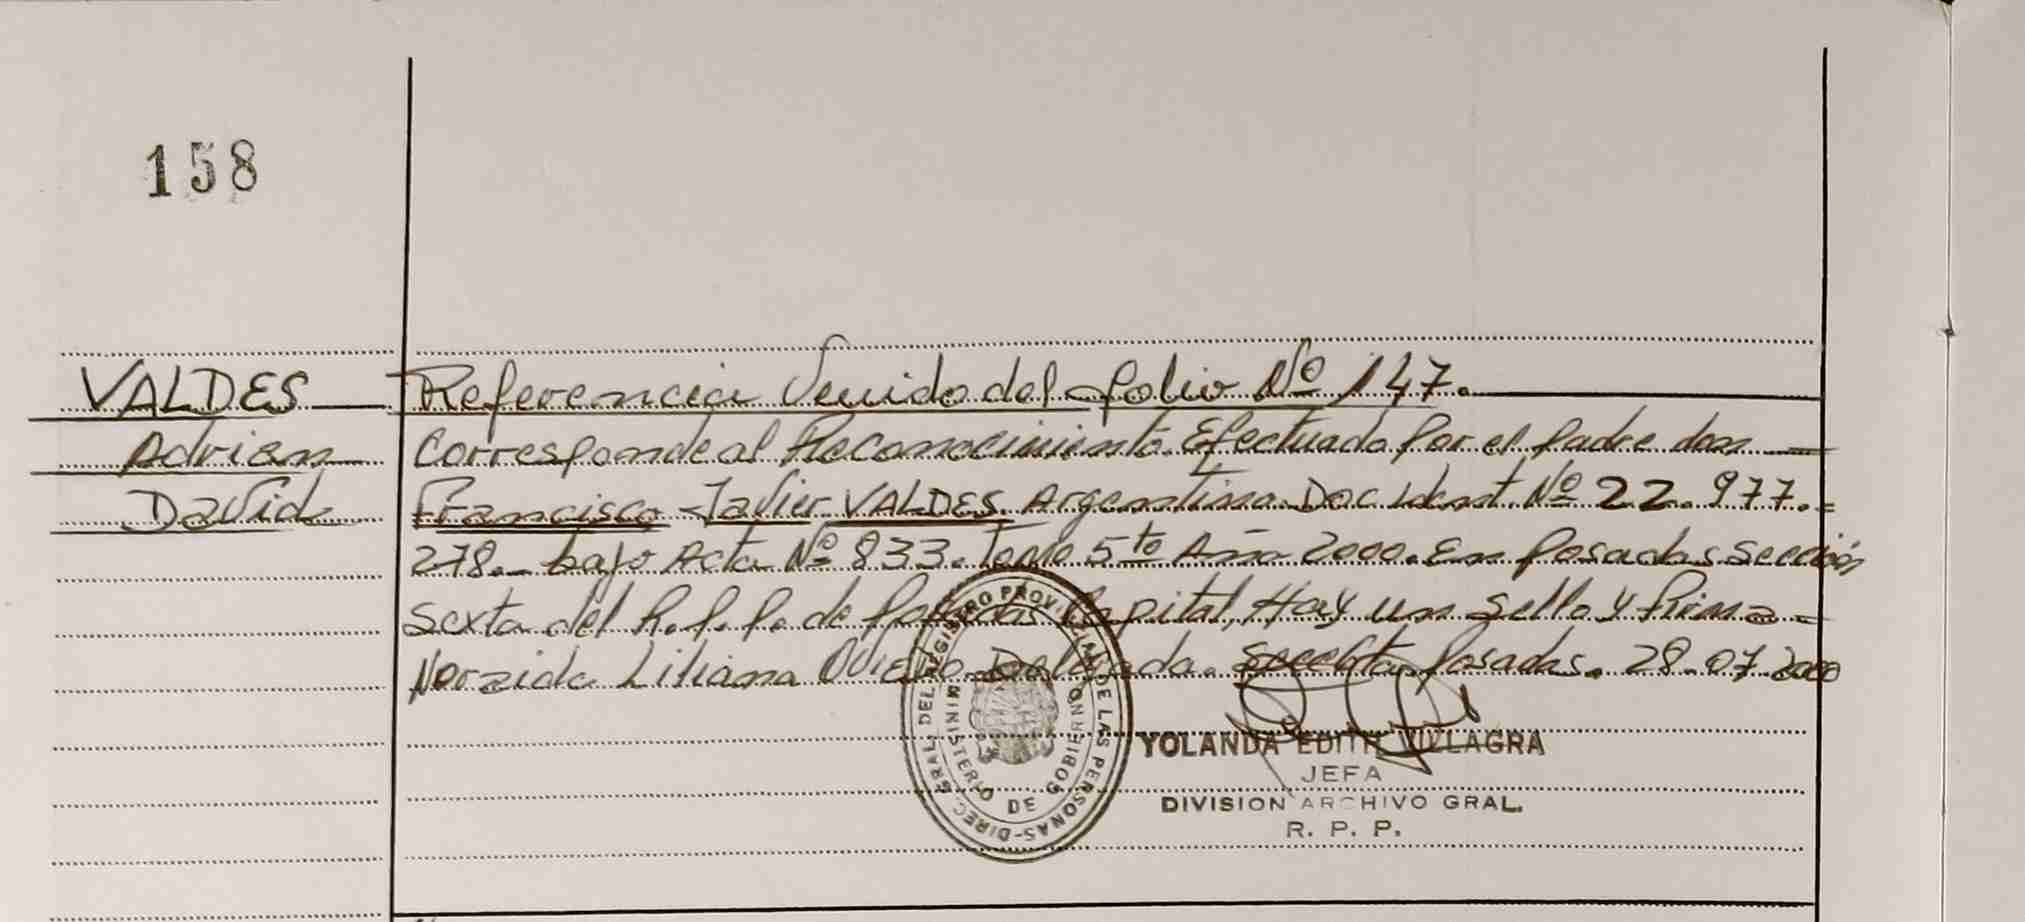 158
VALDES
Adrian
David
Referencia Venido del folio Nº 147.
Corresponde al Reconocimiento Efectuado Por el Padre don
Francisco Javier VALDES. Argentino. Doc. Ident. Nº 22.977.=
278.- bajo Acta Nº 833. Tomo 5to Año 2000. En Posadas Sección
Sexta del R.P.P. de Posadas Capital, Hay un Sello y Firma =
Norzida Liliana Oviedo Delegada. Posadas. 28.07.2000
DIREC. GRAL. DEL REGISTRO PROVINCIAL DE LAS PERSONAS
MINISTERIO DE GOBIERNO
YOLANDA EDITH VILLAGRA
JEFA
DIVISION ARCHIVO GRAL.
R. P. P.